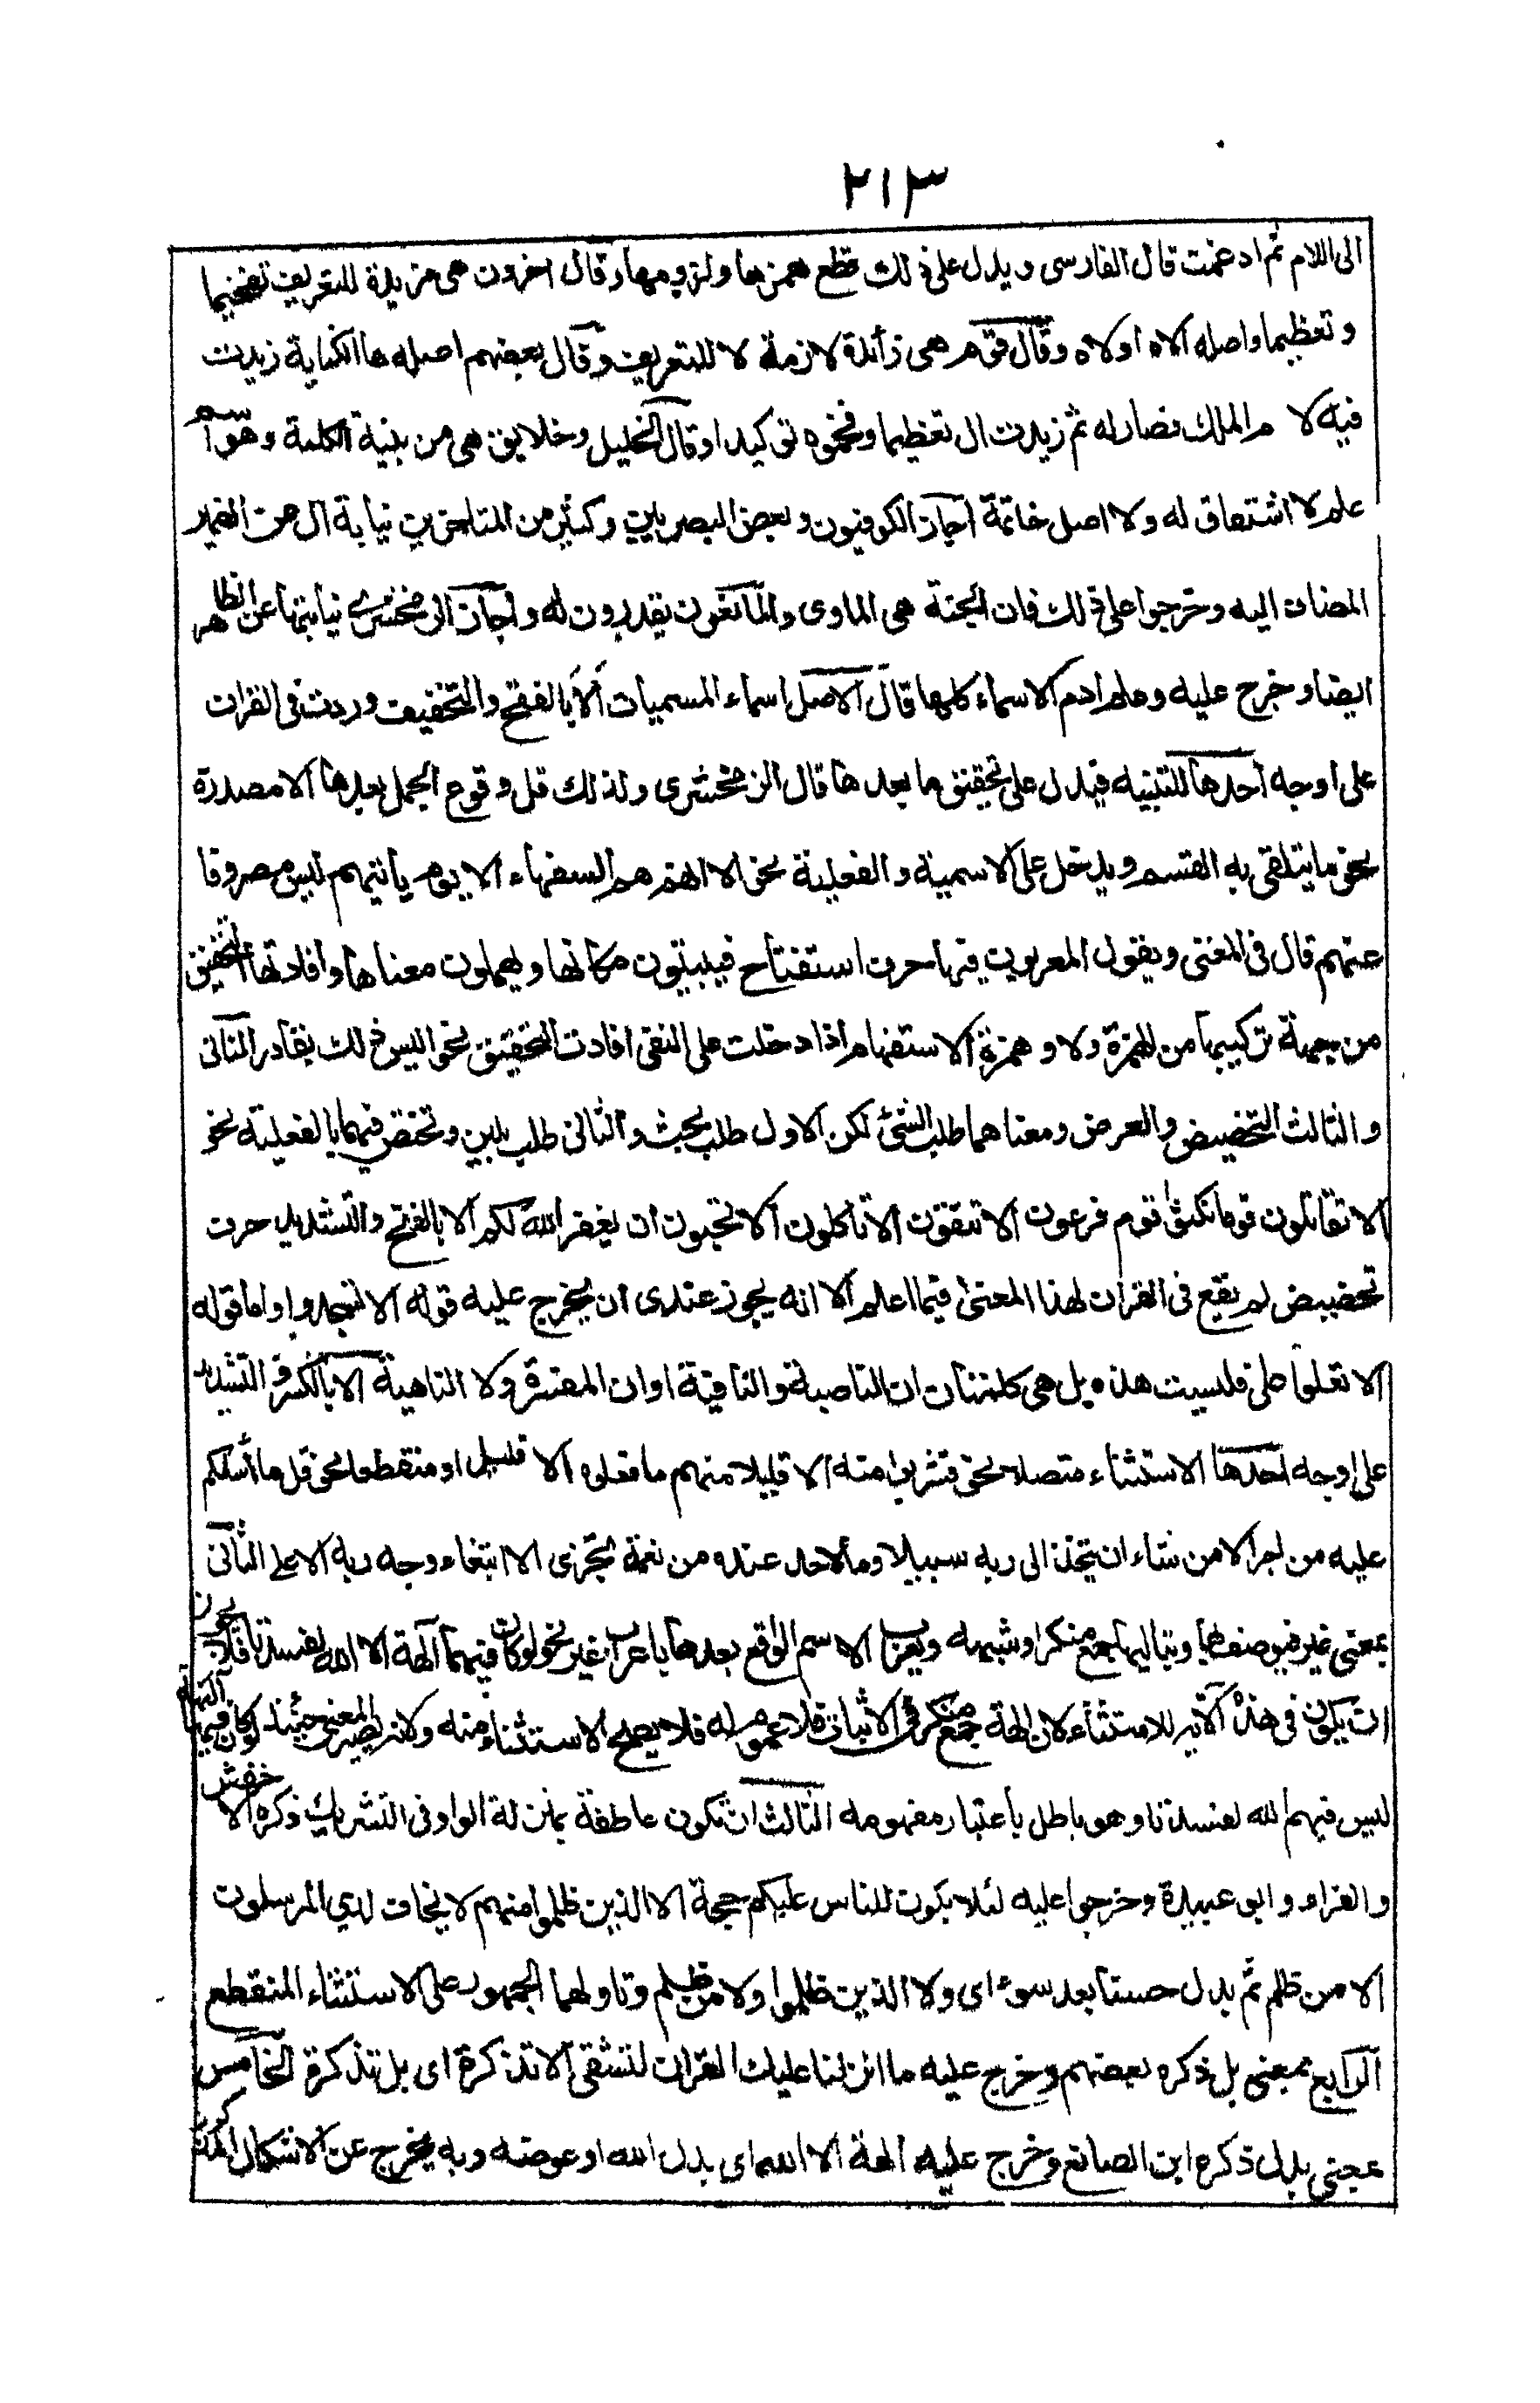 ٢١٣
الى اللام ثم ادغمت قال الفارسى ويدل على ذلك قطع همزها ولزومها وقال اخرون هى مزيدة للتعريف تفخيما
وتعظيما واصله الاه اولاه وقال قوم هى زائدة لازمة لا للتعريف وقال بعضهم اصله ها الكناية زيدت
فيه لام الملك فصار له ثم زيدت ال تعظيما وفخموه توكيدا وقال الخليل وخلايق هى من بنية الكلمة وهو اسم
علم لا اشتقاق له ولا اصل خاتمة اجاز الكوفيون وبعض البصريين وكثير من المتاخرين نيابة ال عن الضمير
المضاف اليه وخرجوا على ذلك فان الجنة هى الماوى والمانعون يقدرون له واجاز الزمخشرى نيابتها عن الظاهر
ايضا وخرج عليه وعلم ادم الاسماء كلها قال الاصل اسماء المسميات ألا بالفتح والتخفيف وردت فى القران
على اوجه احدها للتنبيه فيدل على تحقيق ما بعدها قال الزمخشرى ولذلك قل وقوع الجمل بعدها الا مصدرة
بنحو ما يتلقى به القسم ويدخل على الاسمية والفعلية نحو الا انهم هم السفهاء الا يوم يأتيهم ليس مصروفا
عنهم قال فى المغنى ويقول المعربون فيها حرف استفتاح فيبينون مكانها ويهملون معناها وافادتها التحقيق
من جهة تركيبها من الهمزة ولا وهمزة الاستفهام اذا دخلت على النفى افادت التحقيق نحو اليس ذلك بقادر الثانى
والثالث التحضيض والعرض ومعناهما طلب الشئ لكن الاول طلب بحث والثانى طلب بلين وتختص فيهما بالفعلية نحو
الا تقاتلون قوما نكثوا قوم فرعون الا تتقون الا تأكلون ألا تحبون ان يغفر الله لكم الا بالفتح والتشديد حرف
تحضيض لم يقع فى القران لهذا المعنى فيما اعلم الا انه يجوز عندى ان يخرج عليه قوله الا تسجدوا واما قوله
الا تعلوا على فليست هذه بل هى كلمتان ان الناصبة والنافية او ان المفسرة ولا الناهية الا بالكسر و التشديد
على اوجه احدها الاستثناء متصلا نحو فشربوا منه الا قليلا منهم ما فعلوه الا قليل او منقطعا نحو قل ما أسئلكم
عليه من اجر الا من شاء ان يتخذ الى ربه سبيلا وما لاحد عنده من نعمة تجزى الا ابتغاء وجه ربه الاعلى الثانى
بمعنى غير فيوصف بها وبتاليها جمع منكر او شبهه ويعرب الاسم الواقع بعدها باعراب غير نحو لو كان فيهما آلهة الا الله لفسدتا فلا يجوز
ان يكون فى هذه الآية للاستثناء لان الهة جمع منكر فى الاثبات فلا عموم له فلا يصح الاستثناء منه ولانه يصير المعنى حينئذ لو كان فيهما آلهة
ليس فيهم الله لفسدتا وهو باطل باعتبار مفهومه الثالث ان تكون عاطفة بمنزلة الواو فى التشريك ذكره الاخفش
والفراء وابو عبيدة وخرجوا عليه لئلا يكون للناس عليكم حجة الا الذين ظلموا منهم لا يخاف لدي المرسلون
الا من ظلم ثم بدل حسنا بعد سوء اى ولا الذين ظلموا ولا من ظلم وتاولهما الجمهور على الاستثناء المنقطع
الرابع بمعنى بل ذكره بعضهم وخرج عليه ما انزلنا عليك القران لتشقى الا تذكرة اى بل تذكرة الخامس
بمعنى بدل ذكره ابن الصائغ وخرج عليه الهة الا الله اى بدل الله او عوضه وبه يخرج عن الاشكال المذكور